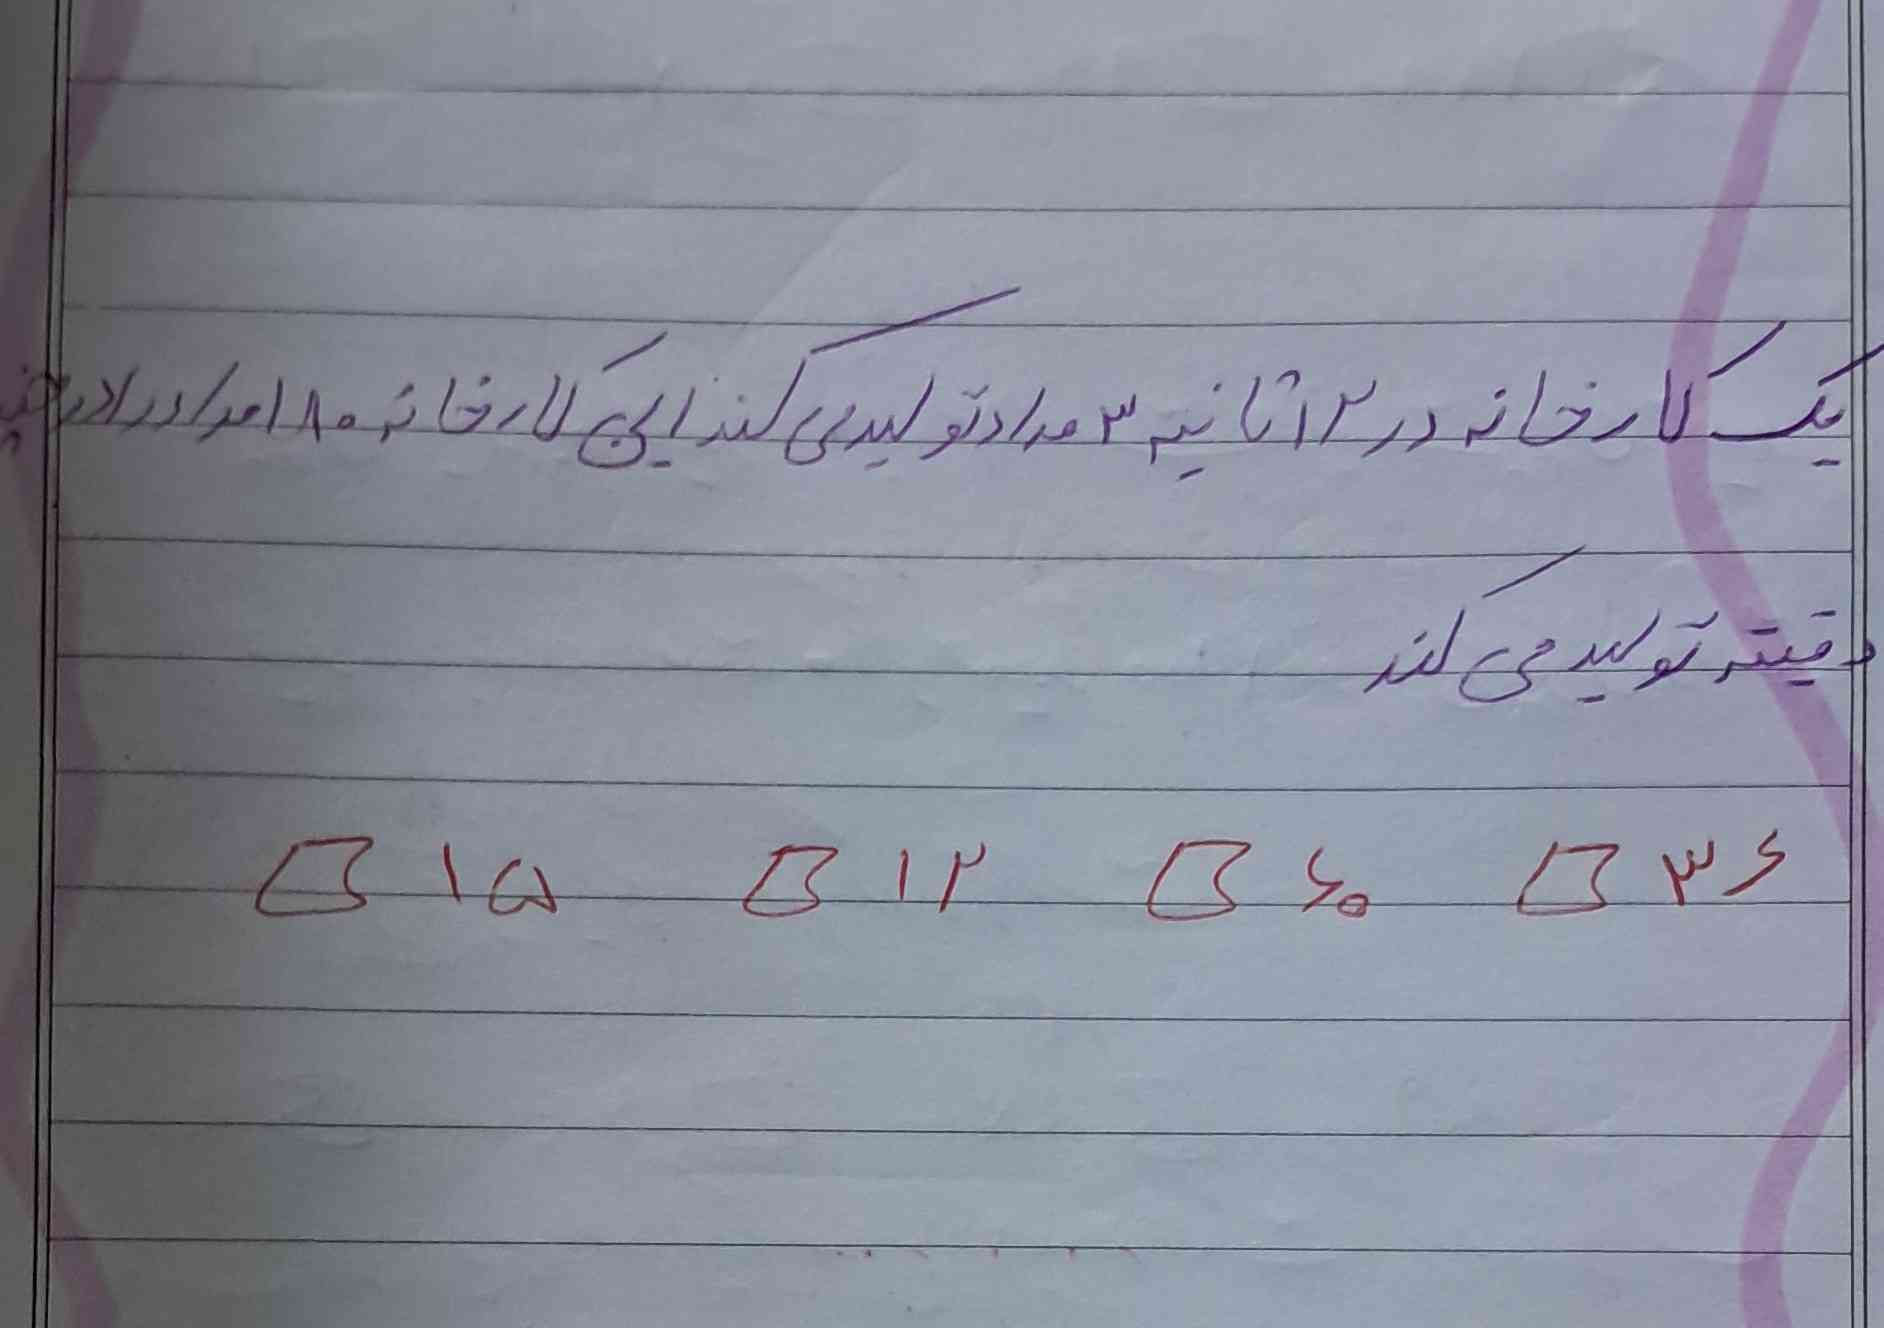 یک کارخانه در ۱۲ ثانیه ۳ مداد تولید می کند این کارخانه ۱۸۰ مداد را در چند
دقیقه تولید می کند
۳۶ ۶۰ ۱۲ ۱۵